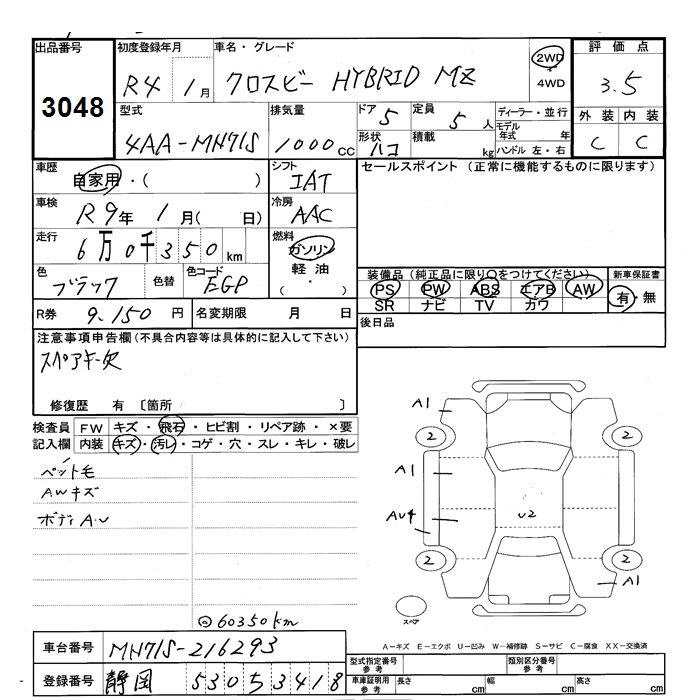 出品番号 初度登録年月 車名・グレード 2WD 4WD 評価点
3048 R4 1月 クロスビー HYBRID MZ 3.5
型式 排気量 ドア 5 定員 5人 ディーラー・並行 外装 内装
4AA-MH71S 1000cc 形状 ハコ 積載 kg モデル年式 年 C C
ハンドル 左・右
車歴 自家用・( ) シフト IAT セールスポイント (正常に機能するものに限ります)
車検 R9年 1月( 日) 冷房 AAC
走行 6万0千350km 燃料 ガソリン 軽油 ( ・ )
色 ブラック 色替 色コード EGP 装備品 (純正品に限り○をつけてください) 新車保証書
PS PW ABS エアB AW 有・無
SR ナビ TV カワ
R券 9,150円 名変期限 月 日 後日品
注意事項申告欄(不具合内容等は具体的に記入して下さい)
スペアキー欠
修復歴 有 〔箇所 〕
検査員 FW キズ・飛石・ヒビ割・リペア跡・×要
記入欄 内装 キズ・汚レ・コゲ・穴・スレ・キレ・破レ
ペット毛
AWキズ
ボディA・U
A1
2 2
A1
AU4 U2
2 2
A1
スペア
60350km
A-キズ E-エクボ U-凹み W-補修跡 S-サビ C-腐食 XX-交換済
車台番号 MH71S-216293 型式指定番号 参考 類別区分番号 参考
登録番号 静岡 530 5 3418 車庫証明用 参考 長さ cm 幅 cm 高さ cm